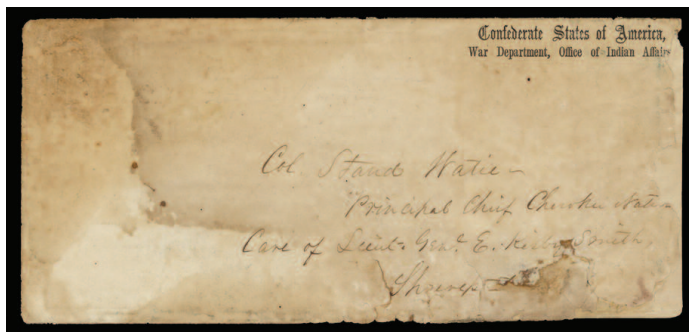 Confederate States of America,
War Department, Office of Indian Affairs
Col Stand Watie -
Principal Chief Cherokee Nation
Care of Lieut. Genl. E. Kirby Smith,